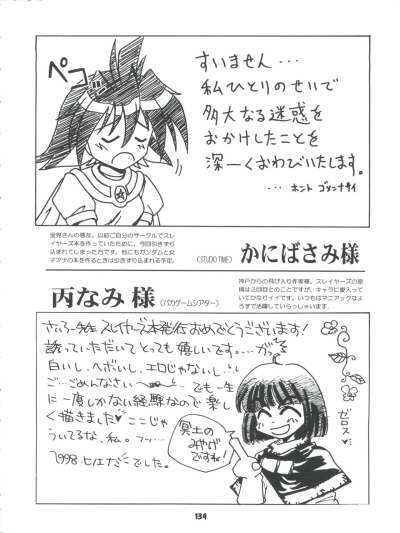 ペコ
すいません…
私ひとりのせいで
多大なる迷惑を
おかけしたことを
深ーくおわびいたします。
… ホント ゴメンナサイ
里見さんの悪友。以前ご自分のサークルでスレ
イヤーズ本を作っていたために、今回引きずり
込まれてしまった方です。他にもガンダムと女
子アナの本を作るときは引きずり込まれる予定。
(STUDIO TIME)
かにばさみ様
丙なみ 様
(バカゲームシアター)
神戸からの飛び入り作家様。スレイヤーズの原
稿は2回目とのことですが、キャラに愛入って
いてかなりイイです。いつもはマニアックなよ
うすで活躍していらっしゃいます。
スレイヤーズ本発行おめでとうございます!
誘っていただいてとっても嬉しいです
白いし。ヘボいし、エロじゃないし…
ご…ごめんなさい〜 でも一生
に一度しかない経験なので楽し
く描きました♡ ここじゃ
ういてるな、私。フッ…
1998. ヒノエなみでした。
冥土の
みやげ
ですね!
ゼロス
134